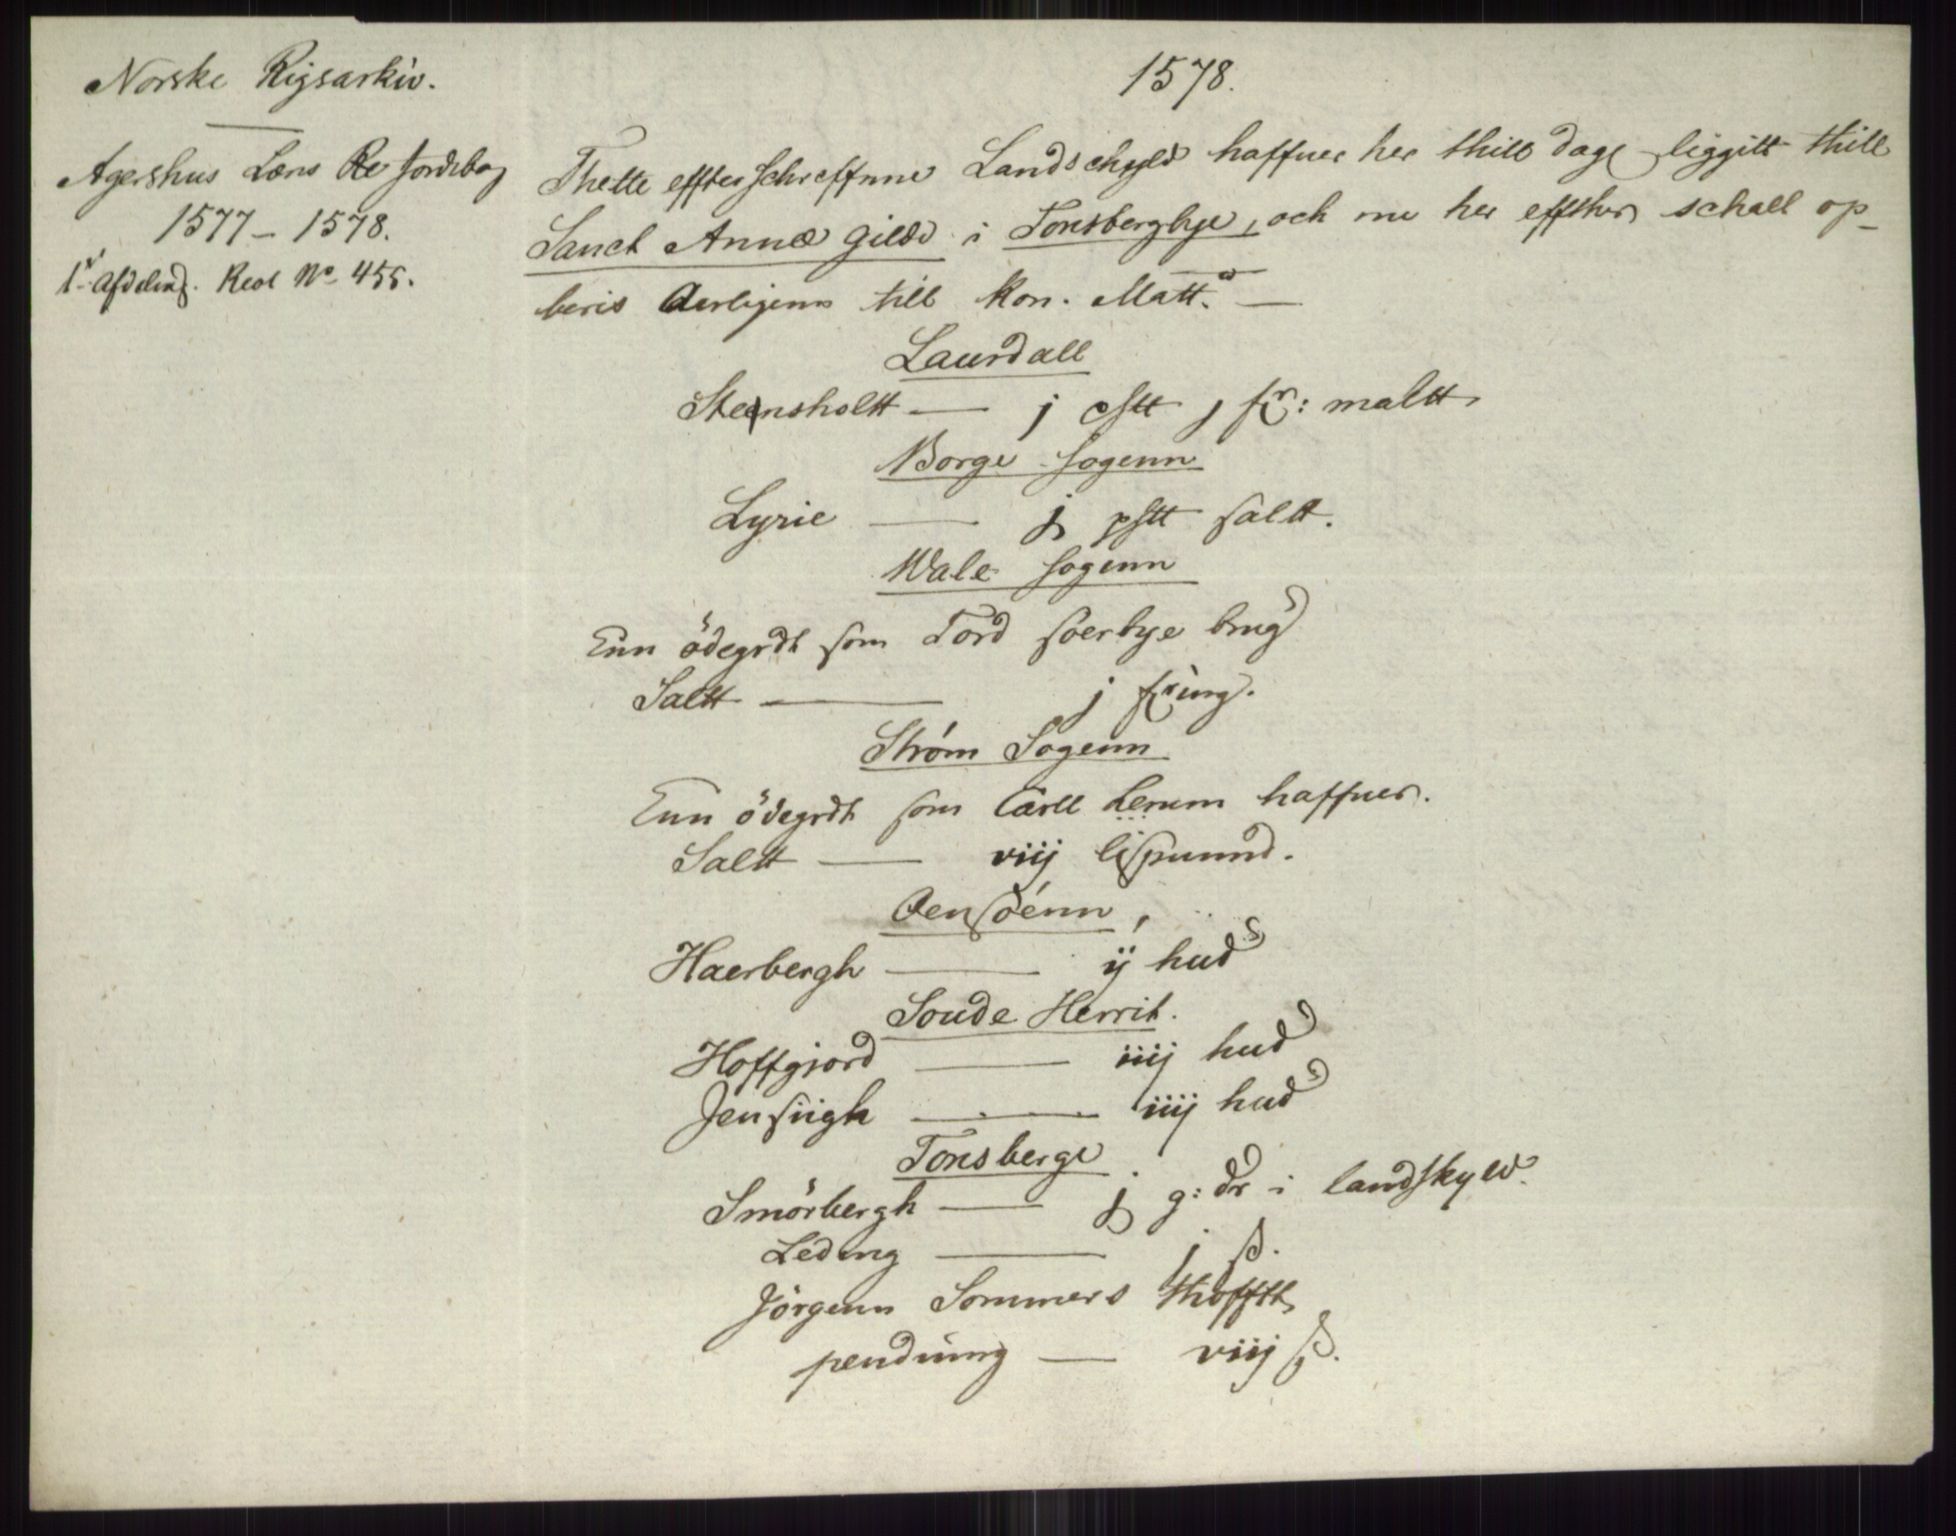 Norske Rigsarkiv.
Agershus Læns Re Jordebog
1577 – 1578.
1ste Afdeling. Reol No 455.
1578.
Thette effterschreffnne Landschyld haffuer her thill dage liggitt thill
Sanct Annæ Gilde i Tonsbergbye, och nu her effther schall op-
beris Aarligenn till Kon. Matt.
Laurdall
Stensholtt — j ... maltt
Borge Sogenn
Lyrie — j pstt saltt.
Wale Sogenn
Enn ödegrdt som Tord soerbye brug
Saltt — j fring.
Strøm Sogenn
Enn ödegrdt som Carll Lerum haffuer.
Saltt — viij lispunnd.
Oensøenn
Haerbergh — ij hud
Soude Herrit.
Hoffgjord — iiij hud
Jensiigh — iiij hud
Tonsberge
Smörbergh — j g: dr i landskyld.
Leding — j ß.
Jörgenn Sommers thofftt
pendinng — viij ß.